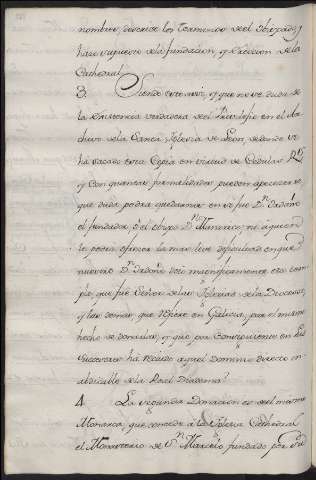 nombres, describe los terminos del Obispado, y
hace supuesto de la fundacion, y Ereccion de la
Cathedral.
3. Siendo esto assi, y que no ve duda de
la Existencia verdadera del Privilegio en el Ar
chivo de la Santa Iglesia de Leon, de donde se
ha sacado esta Copia en virtud de Cedulas R.s
y con quantas formalidades pueden apetecerse
que duda podra quedarnos en si fue D.n Ordoño
el fundador, o el obispo D.n Mauricio, ni a quien
le podra ofrecer la mas leve dificultad en que
nuestro D.n Ordoño doto magnificamente esta
que fue Señor de las Iglesias de la Diocesis,
y las demas que refiere en Galicia, por el mismo
hecho de donarlas, y que por consiguiente en sus
Successores ha recaido aquel Dominio directo en
el de la Real Diadema?
4. La segunda Donacion es del mismo
Monarca, que concede a la Iglesia Cathedral
el Monasterio de S.n Marcelo fundado por